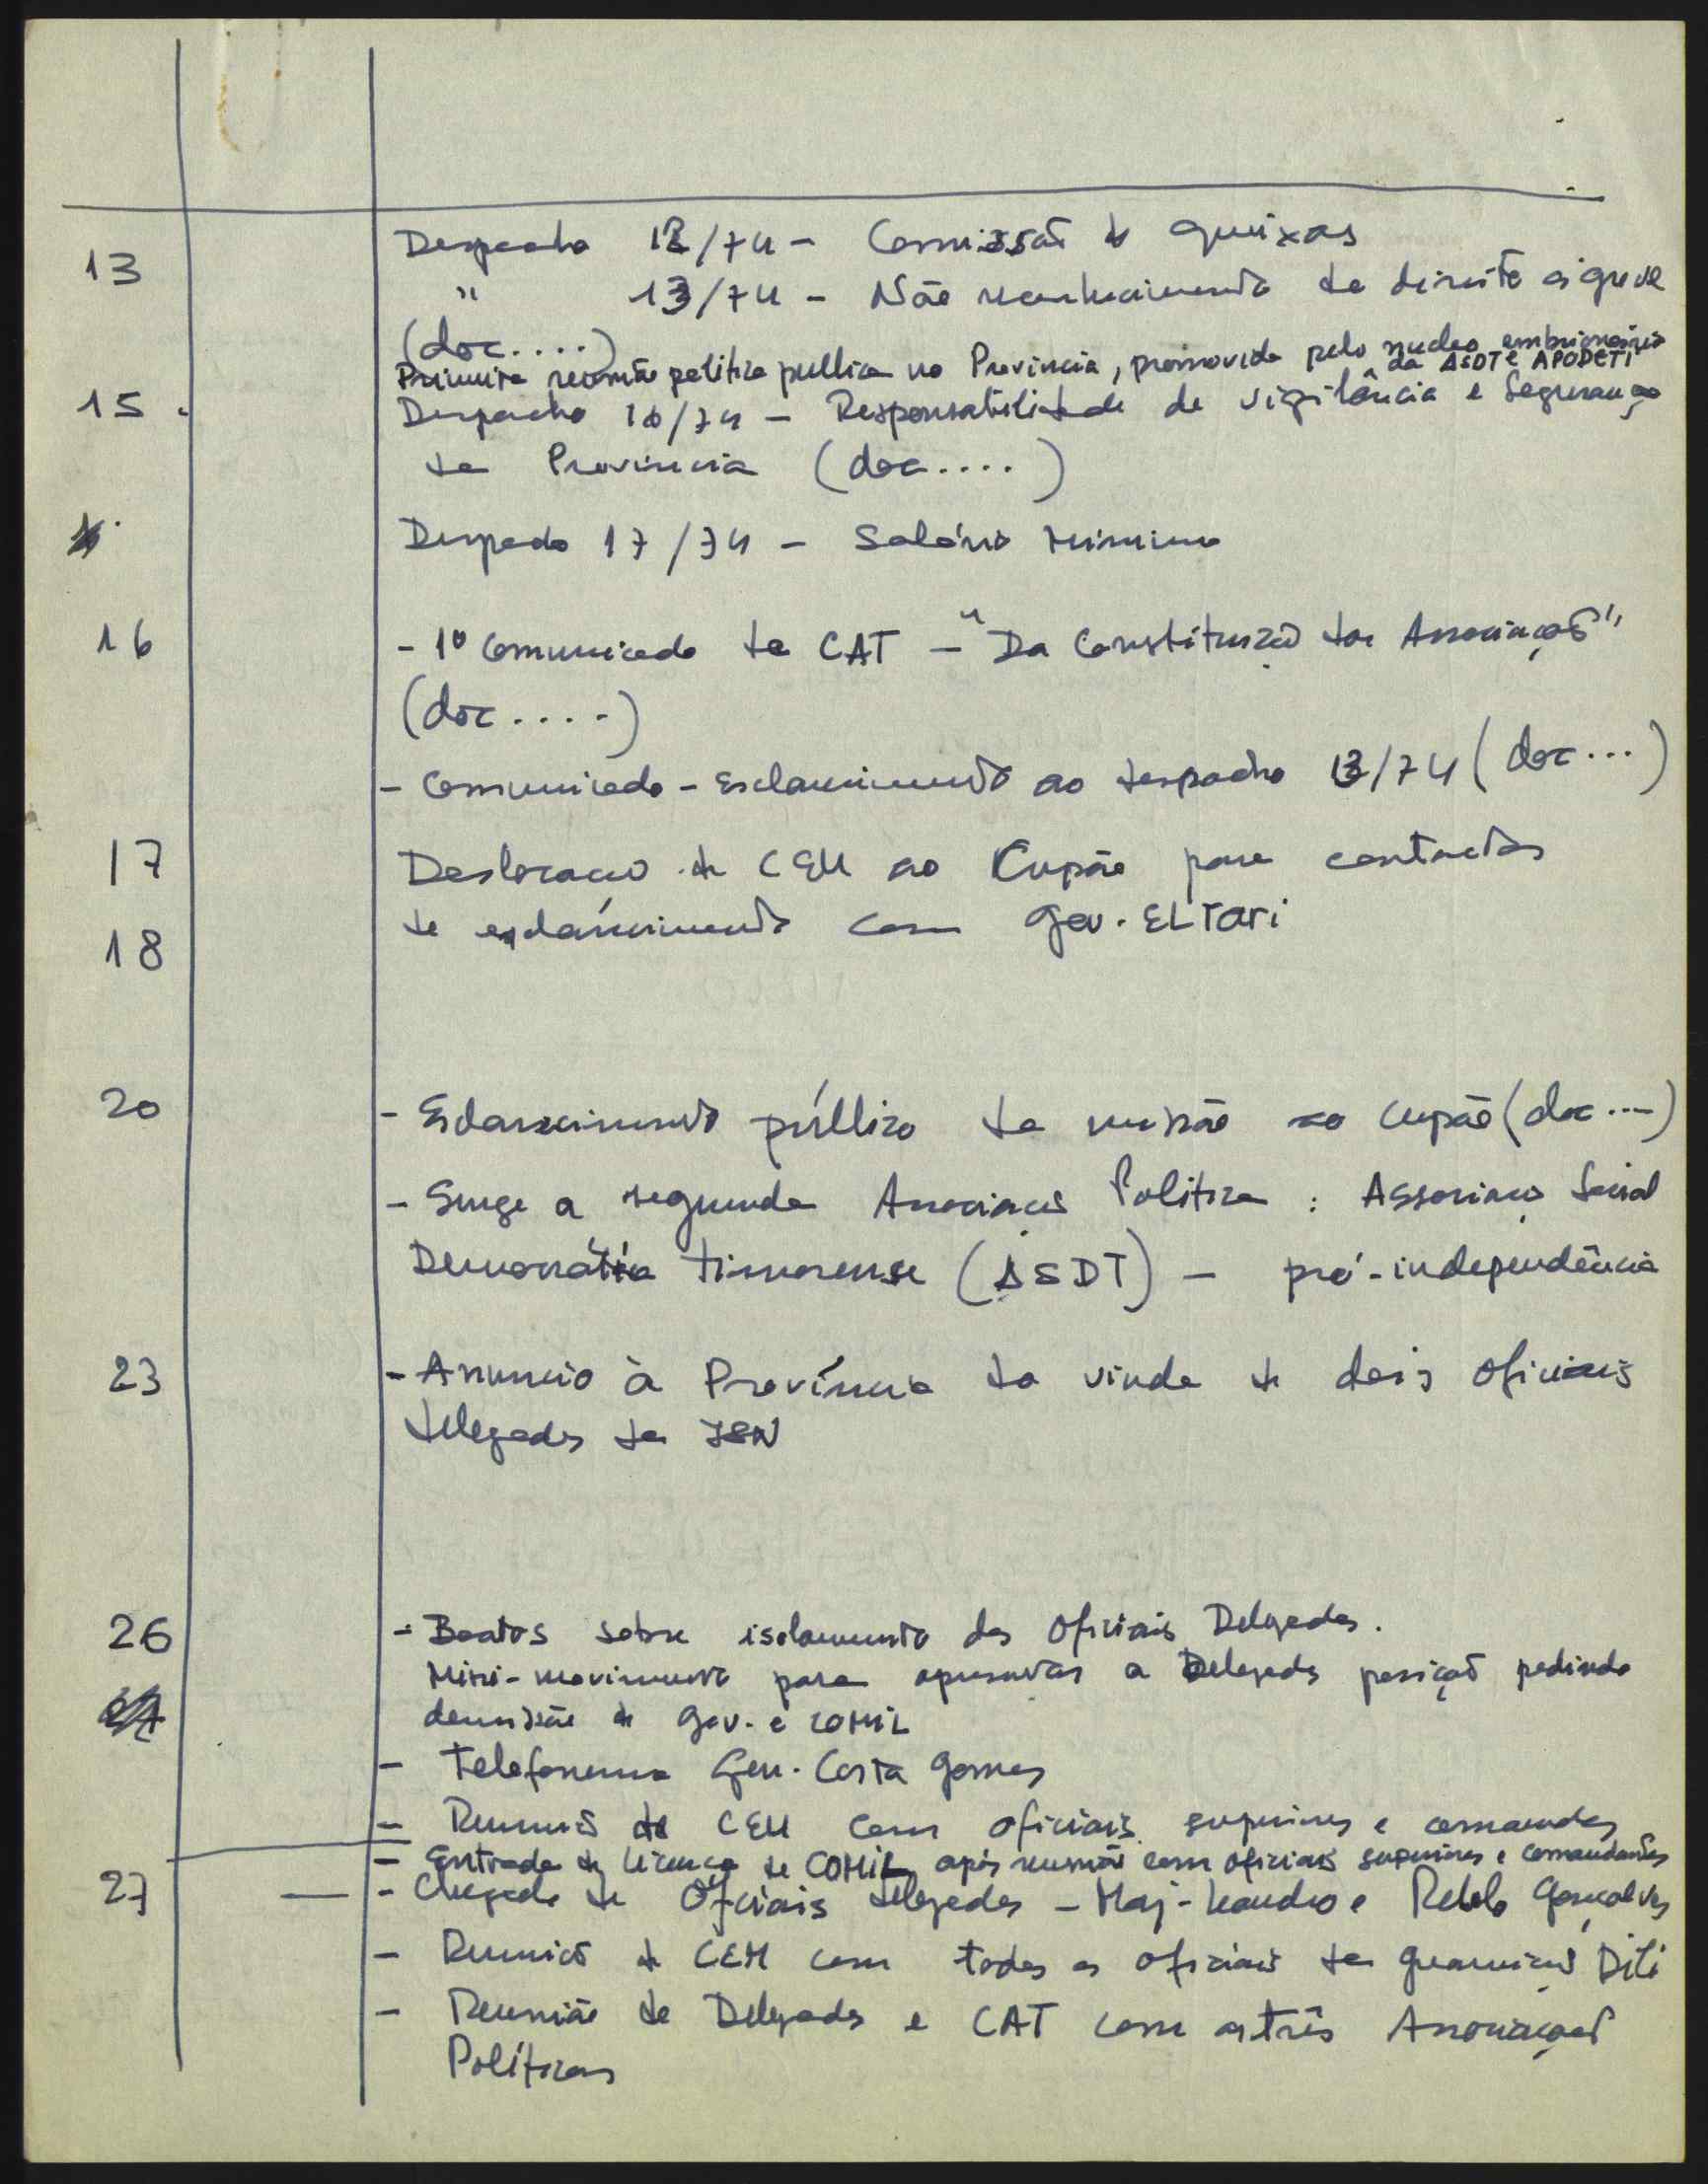 13 Despacho 12/74 - Comissão de queixas
" 13/74 - Não reconhecimento do direito à greve
(doc....)
Primeira reunião politica publica na Provincia, promovida pelo nucleo embrionário
da ASDT e APODETI
15. Despacho 16/74 - Responsabilidade de vigilância e Segurança
da Provincia (doc....)
Despacho 17/74 - Salário Minimo
16 - 1º Comunicado da CAT - "Da Constituição das Associações"
(doc....)
- Comunicado - Esclarecimento ao despacho 13/74 (doc...)
17 Deslocação do CEM ao Cupão para contactos
18 de esclarecimento com Gov. EL TARI
20 - Esclarecimento público da missão ao Cupão (doc....)
- Surge a segunda Associação Politica : Associação Social
Democrática Timorense (ASDT) - pró-independência
23 - Anuncio à Província da vinda de dois oficiais
delegados da JSN
26 - Boatos sobre isolamento dos Oficiais Delegados.
Mini-movimento para apresentar a Delegados posição pedindo
demissão do Gov. e COMIL
- Telefonema Gen. Costa Gomes
- Reunião do CEM com oficiais superiores e comandos
- Entrada de licença de COMIL após reunião com oficiais superiores e comandantes
27 - Chegada de Oficiais delegados - Maj- Leandro e Rebelo Gonçalves
- Reunião do CEM com todos os oficiais da guarnição Dili
- Reunião de Delegados e CAT com as três Associações
Políticas